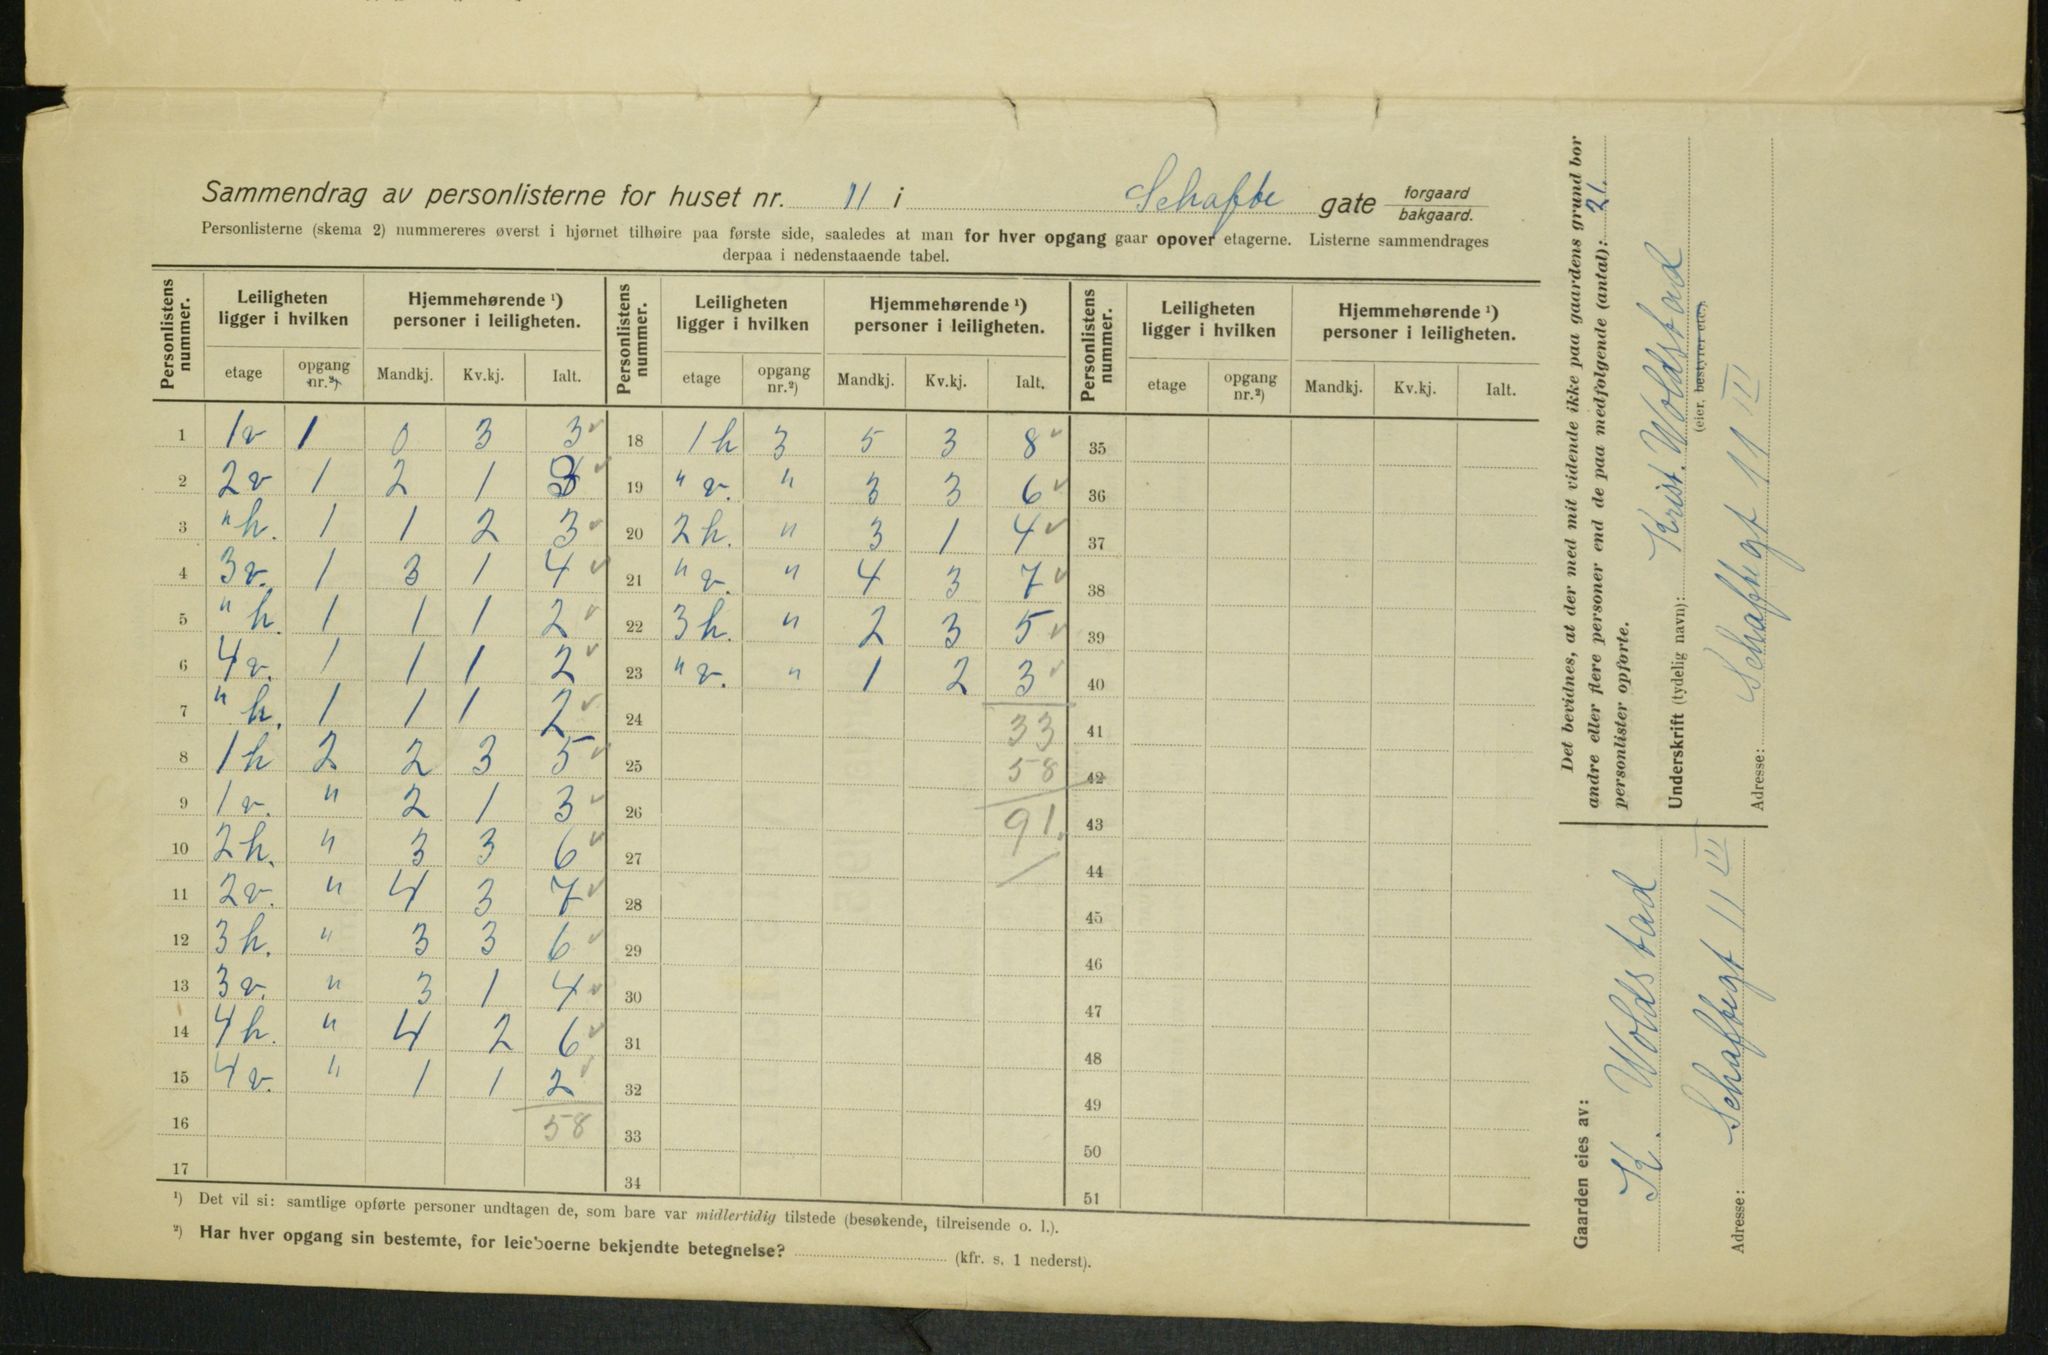 Sammendrag av personlisterne for huset nr. 11 i Schafte gate forgaard bakgaard.
Personlisterne (skema 2) nummereres øverst i hjørnet tilhøire paa første side, saaledes at man for hver opgang gaar opover etagerne. Listerne sammendrages
derpaa i nedenstaaende tabel.
Personlistens nummer. Leiligheten ligger i hvilken Hjemmehørende ¹) personer i leiligheten. Personlistens nummer. Leiligheten ligger i hvilken Hjemmehørende ¹) personer i leiligheten. Personlistens nummer. Leiligheten ligger i hvilken Hjemmehørende ¹) personer i leiligheten.
etage opgang nr.²) Mandkj. Kv.kj. Ialt. etage opgang nr.²) Mandkj. Kv.kj. Ialt. etage opgang nr.²) Mandkj. Kv.kj. Ialt.
1 1v 1 0 3 3 18 1h 3 5 3 8 35
2 2v 1 2 1 3 19 " v. " 3 3 6 36
3 " h. 1 1 2 3 20 2h. " 3 1 4 37
4 3v. 1 3 1 4 21 " v. " 4 3 7 38
5 " h. 1 1 1 2 22 3h. " 2 3 5 39
6 4v. 1 1 1 2 23 " v. " 1 2 3 40
7 " h. 1 1 1 2 24 33 41
8 1h 2 2 3 5 25 58 42
9 1v. " 2 1 3 26 91. 43
10 2h. " 3 3 6 27 44
11 2v. " 4 3 7 28 45
12 3h. " 3 3 6 29 46
13 3v. " 3 1 4 30 47
14 4h. " 4 2 6 31 48
15 4v. " 1 1 2 32 49
16 58 33 50
17 34 51
¹) Det vil si: samtlige opførte personer undtagen de, som bare var midlertidig tilstede (besøkende, tilreisende o. l.).
²) Har hver opgang sin bestemte, for leieboerne bekjendte betegnelse? (kfr. s. 1 nederst).
Det bevidnes, at der med mit vidende ikke paa gaardens grund bor
andre eller flere personer end de paa medfølgende (antal): 21.
personlister opførte.
Underskrift (tydelig navn): Krist. Woldstad
(eier, bestyrer etc.)
Adresse: Schaftegt 11 III
Gaarden eies av:
K. Woldstad
Adresse: Schaftegt 11 III